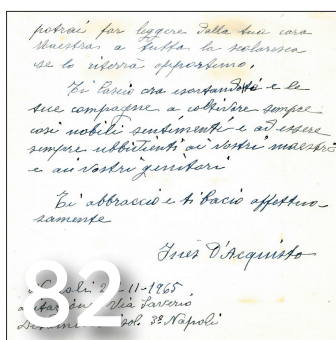 potrai far leggere dalla tua cara
Maestra a tutta la scolaresca
se lo riterrà opportuno.
Ti lascio ora esortandoti e le
tue compagne a coltivare sempre
così nobili sentimenti e ad essere
sempre ubbidienti ai vostri maestri
e ai vostri genitori
Ti abbraccio e ti bacio affettuo-
samente
Ines D'Acquisto
82
-11-1965
Via Saverio
isol. 3º Napoli